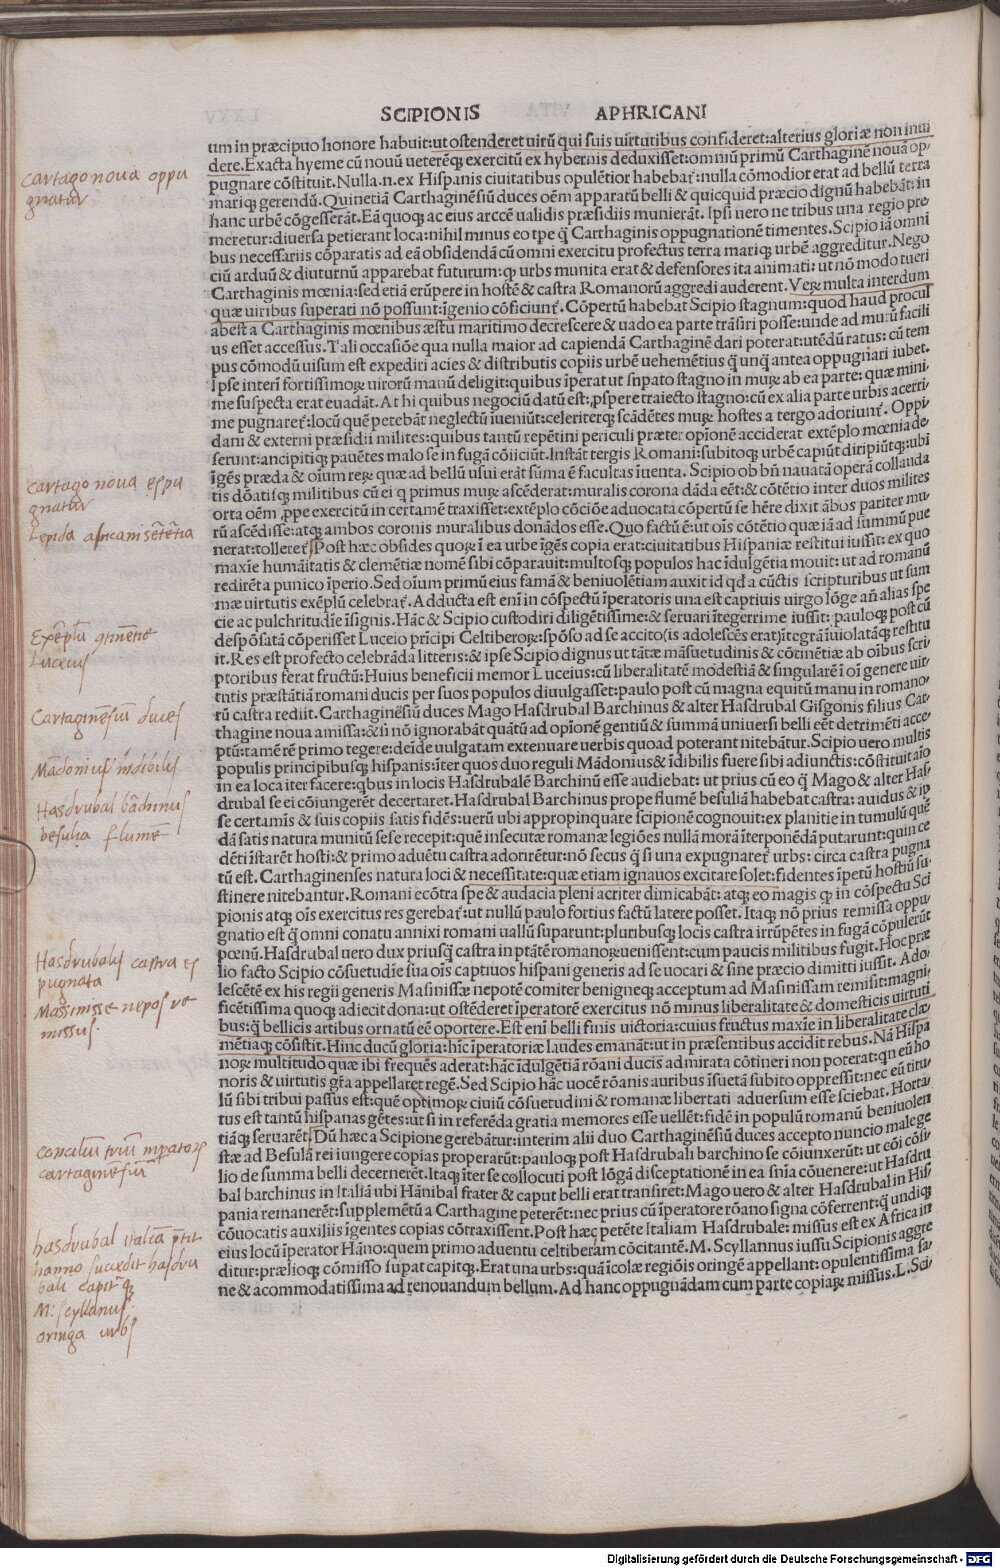 SCIPIONIS APHRICANI
um in præcipuo honore habuit:ut ostenderet uirũ qui suis uirtutibus confideret:alterius gloriæ non inui
dere.Exacta hyeme cũ nouũ ueterẽq; exercitũ ex hybernis deduxisset:omniũ primũ Carthaginẽ nouã op
pugnare cõstituit.Nulla.n.ex Hispanis ciuitatibus opulẽtior habebat̃:nulla cõmodior erat ad bellũ terra
mariq; gerendũ.Quinetiã Carthaginẽsiũ duces oẽm apparatũ belli & quicquid præcio dignũ habebãt:in
hanc urbẽ cõgesserãt.Eã quoq; ac eius arccẽ ualidis præsidiis munierãt. Ipsi uero ne tribus una regio pre
meretur:diuersa petierant loca:nihil minus eo tpe q̃ Carthaginis oppugnationẽ timentes.Scipio iã omni
bus necessariis cõparatis ad eã obsidendã cũ omni exercitu profectus terra mariq; urbẽ aggreditur.Nego
ciũ arduũ & diuturnũ apparebat futurum:q; urbs munita erat & defensores ita animati: ut nõ modo tueri
Carthaginis mœnia:sed etiã erũpere in hostẽ & castra Romanorũ aggredi auderent.Veꝝ multa interdum
quæ uiribus superari nõ possunt:ĩgenio cõficiunt̃. Cõpertũ habebat Scipio stagnum:quod haud procul
abest a Carthaginis mœnibus æstu maritimo decrescere & uado ea parte trãsiri posse:unde ad murũ facili
us esset accessus.Tali occasiõe qua nulla maior ad capiendã Carthaginẽ dari poterat:utẽdũ ratus: cũ tem
pus cõmodũ uisum est expediri acies & distributis copiis urbẽ uehemẽtius q̃ unq̃ antea oppugnari iubet.
Ipse interĩ fortissimoꝝ uiroru manũ deligit:quibus ĩperat ut supato stagno in muꝝ ab ea parte: quæ mini
me suspecta erat euadãt.At hi quibus negociũ datũ est:pspere traiecto stagno:cũ ex alia parte urbis acerri
me pugnaret̃:locũ quẽ petebãt neglectũ iueniũt:celeriterq; scãdẽtes muꝝ hostes a tergo adoriunt̃. Oppi
dani & externi præsidii milites:quibus tantũ repẽtini periculi præter opiõnẽ acciderat extẽplo mœnia de
serunt:ancipitiq; pauẽtes malo se in fugã cõiiciũt.Instãt tergis Romani:subitoq; urbẽ capiũt diripiũtq;:ubi
ĩgẽs præda & oĩum reꝝ quæ ad bellũ usui erãt sũma ẽ facultas iuenta. Scipio ob bñ nauatã operã collauda
tis dõatisq; militibus cũ ei q primus muꝝ ascẽderat:muralis corona dãda eẽt:& cõtẽtio inter duos milites
orta oẽm ppe exercitũ in certamẽ traxisset:extẽplo cõciõe aduocata cõpertũ se hẽre dixit ãbos pariter mu
rũ ascẽdisse:atq; ambos coronis muralibus donãdos esse.Quo factũ ẽ:ut oĩs cõtẽtio quæ iã ad summũ pue
nerat:tolleret̃.Post hæc obsides quoꝝ ĩ ea urbe ĩgẽs copia erat:ciuitatibus Hispaniæ restitui iussit: ex quo
maxĩe humãitatis & clemẽtiæ nomẽ sibi cõparauit:multosq; populos hac ĩdulgẽtia mouit: ut ad romanũ
redirẽt a punico ĩperio.Sed oĩum primũ eius famã & beniuolẽtiam auxit id qd a cũctis scripturibus ut sum
mæ uirtutis exẽplũ celebrat̃.Adducta est enĩ in cõspectũ ĩperatoris una est captiuis uirgo lõge añ alias spe
cie ac pulchritudĩe ĩsignis.Hãc & Scipio custodiri diligẽtissime:& seruari ĩtegerrime iussit: pauloq; post cũ
despõsatã cõperisset Luceio prĩcipi Celtiberoꝝ:spõso ad se accito(is adolescẽs erat)ĩtegrã ĩuiolatãq; restitu
it.Res est profecto celebrãda litteris:& ipse Scipio dignus ut tãtæ mãsuetudinis & cõtinẽtiæ ab oĩbus scri
ptoribus ferat fructũ:Huius beneficii memor Luceius:cũ liberalitatẽ modestiã & singularẽ ĩ oĩ genere uir
tutis præstãtiã romani ducis per suos populos diuulgasset:paulo post cũ magna equitũ manu in romano
rũ castra rediit.Carthaginẽsiũ duces Mago Hasdrubal Barchinus & alter Hasdrubal Gisgonis filius Car
thagine noua amissa:& si nõ ignorabãt quãtũ ad opionẽ gentiũ & summã uniuersi belli eẽt detrimẽti acce
ptũ:tamẽ rẽ primo tegere:deĩde uulgatam extenuare uerbis quoad poterant nitebãtur.Scipio uero multis
populis principibusq; hispanis:ĩter quos duo reguli Mãdonius & ĩdibilis fuere sibi adiunctis:cõstituit aĩo
in ea loca iter facere:qbus in locis Hasdrubalẽ Barchinũ esse audiebat: ut prius cũ eo q̃ Mago & alter Has
drubal se ei cõiungerẽt decertaret.Hasdrubal Barchinus prope flumẽ besuliã habebat castra: auidus & ip
se certamĩs & suis copiis satis fidẽs:uerũ ubi appropinquare scipionẽ cognouit:ex planitie in tumulũ quẽ
dã satis natura munitũ sese recepit:quẽ insecutæ romanæ legiões nullã morã ĩterponẽdã putarunt:quin ce
dẽti ĩstarẽt hosti:& primo aduẽtu castra adorirẽtur:nõ secus q̃ si una expugnaret̃ urbs: circa castra pugna
tũ est. Carthaginenses natura loci & necessitate:quæ etiam ignauos excitare solet:fidentes ĩpetũ hostiũ su
stinere nitebantur.Romani ecõtra spe & audacia pleni acriter dimicabãt: atq; eo magis q; in cõspectu Sci
pionis atq; oĩs exercitus res gerebat̃:ut nullũ paulo fortius factũ latere posset. Itaq; nõ prius remissa oppu
gnatio est q̃ omni conatu annixi romani uallũ suparunt:pluribusq; locis castra irrũpẽtes in fugã cõpulerũt
pœnũ.Hasdrubal uero dux priusq̃ castra in ptãtẽ romanoꝝ uenissent:cum paucis militibus fugit.Hoc præ
lio facto Scipio cõsuetudĩe sua oĩs captiuos hispani generis ad se uocari & sine præcio dimitti iussit. Ado
lescẽtẽ ex his regii generis Masinissæ nepotẽ comiter benigneq; acceptum ad Masinissam remisit:magni
ficẽtissima quoq; adiecit dona:ut ostẽderet ĩperatorẽ exercitus nõ minus liberalitate & domesticis uirtuti
bus:q̃ bellicis artibus ornatũ eẽ oportere.Est enĩ belli finis uictoria:cuius fructus maxĩe in liberalitate clæ
mẽtiaq; cõsistit.Hinc ducũ gloria:hĩc ĩperatoriæ laudes emanãt:ut in præsentibus accidit rebus.Nã Hispa
noꝝ multitudo quæ ibi frequẽs aderat:hãc ĩdulgẽtiã rõani ducis admirata cõtineri non poterat:qn eũ ho
noris & uirtutis gr̃a appellaret regẽ.Sed Scipio hãc uocẽ rõanis auribus ĩsuetã subito oppressit:nec eũ titu
lũ sibi tribui passus est:quẽ optimoꝝ ciuiũ cõsuetudini & romanæ libertati aduersum esse sciebat. Horta
tus est tantũ hispanas gẽtes:ut si in referẽda gratia memores esse uellẽt:fidẽ in populũ romanũ beniuolen
tiãq; seruarẽt.Dũ hæc a Scipione gerebãtur:interim alii duo Carthaginẽsiũ duces accepto nuncio malege
stæ ad Besulã rei iungere copias properarũt:pauloq; post Hasdrubali barchino se cõiunxerũt: ut cõi cõsi
lio de summa belli decernerẽt.Itaq; ĩter se collocuti post lõgã disceptationẽ in ea snĩa cõuenere:ut Hasdru
bal barchinus in Italiã ubi Hãnibal frater & caput belli erat transiret:Mago uero & alter Hasdrubal in His
pania remanerẽt:supplemẽtũ a Carthagine peterẽt:nec prius cũ ĩperatore rõano signa cõferrent:q̃ undiq;
cõuocatis auxiliis ĩgentes copias cõtraxissent.Post hæc petẽte Italiam Hasdrubale: missus est ex Africa in
eius locũ ĩperator Hãno:quem primo aduentu celtiberam cõcitantẽ.M.Scyllannus iussu Scipionis aggre
ditur:prælioq; cõmisso supat capitq;.Erat una urbs:quã ĩcolæ regiõis oringẽ appellant:opulentissima sa
ne & acommodatissima ad renouandum bellum.Ad hanc oppugnãdam cum parte copiaꝝ missus.L.Sci
cartago noua oppu
gnatur
cartago noua expu
gnatur
Lepida africani sẽtẽtia
Exẽplũ cõtinẽtie
Luceius
Cartaginẽsiũ duces
Mãdonius indibilis
Hasdrubal bãrchinus
besulia flumẽ
Hasdrubalis castra ex
pugnata
Massinisse nepos re
missus
consiliũ triũ imperatorꝝ
cartaginẽsiũ
hasdrubal italiã petit
hanno succedit hasdru
bali capitq;
M. scyllanus
oringa urbs
Digitalisierung gefördert durch die Deutsche Forschungsgemeinschaft - DFG